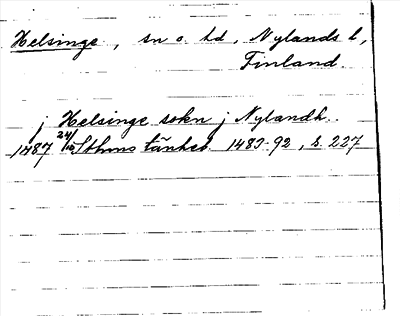 Helsinge, sn o. hd, Nylands l,
Finland.
j Helsinge sokn j Nylandh.
1487 24/10 Sthms tänkeb. 1483-92, s. 227